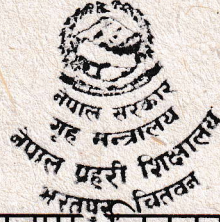 नेपाल सरकार
गृह मन्त्रालय
नेपाल प्रहरी शिक्षालय
भरतपुर चितवन